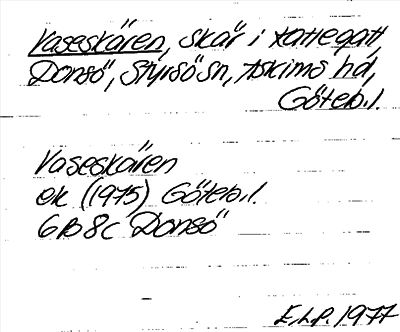 Vaseskären, skär i Kattegatt
Donsö, Styrsö sn, Askims hd,
Göteb.l.
Vaseskären
ek (1975) Göteb.l.
6B 8c Donsö
E.L.P. 1977